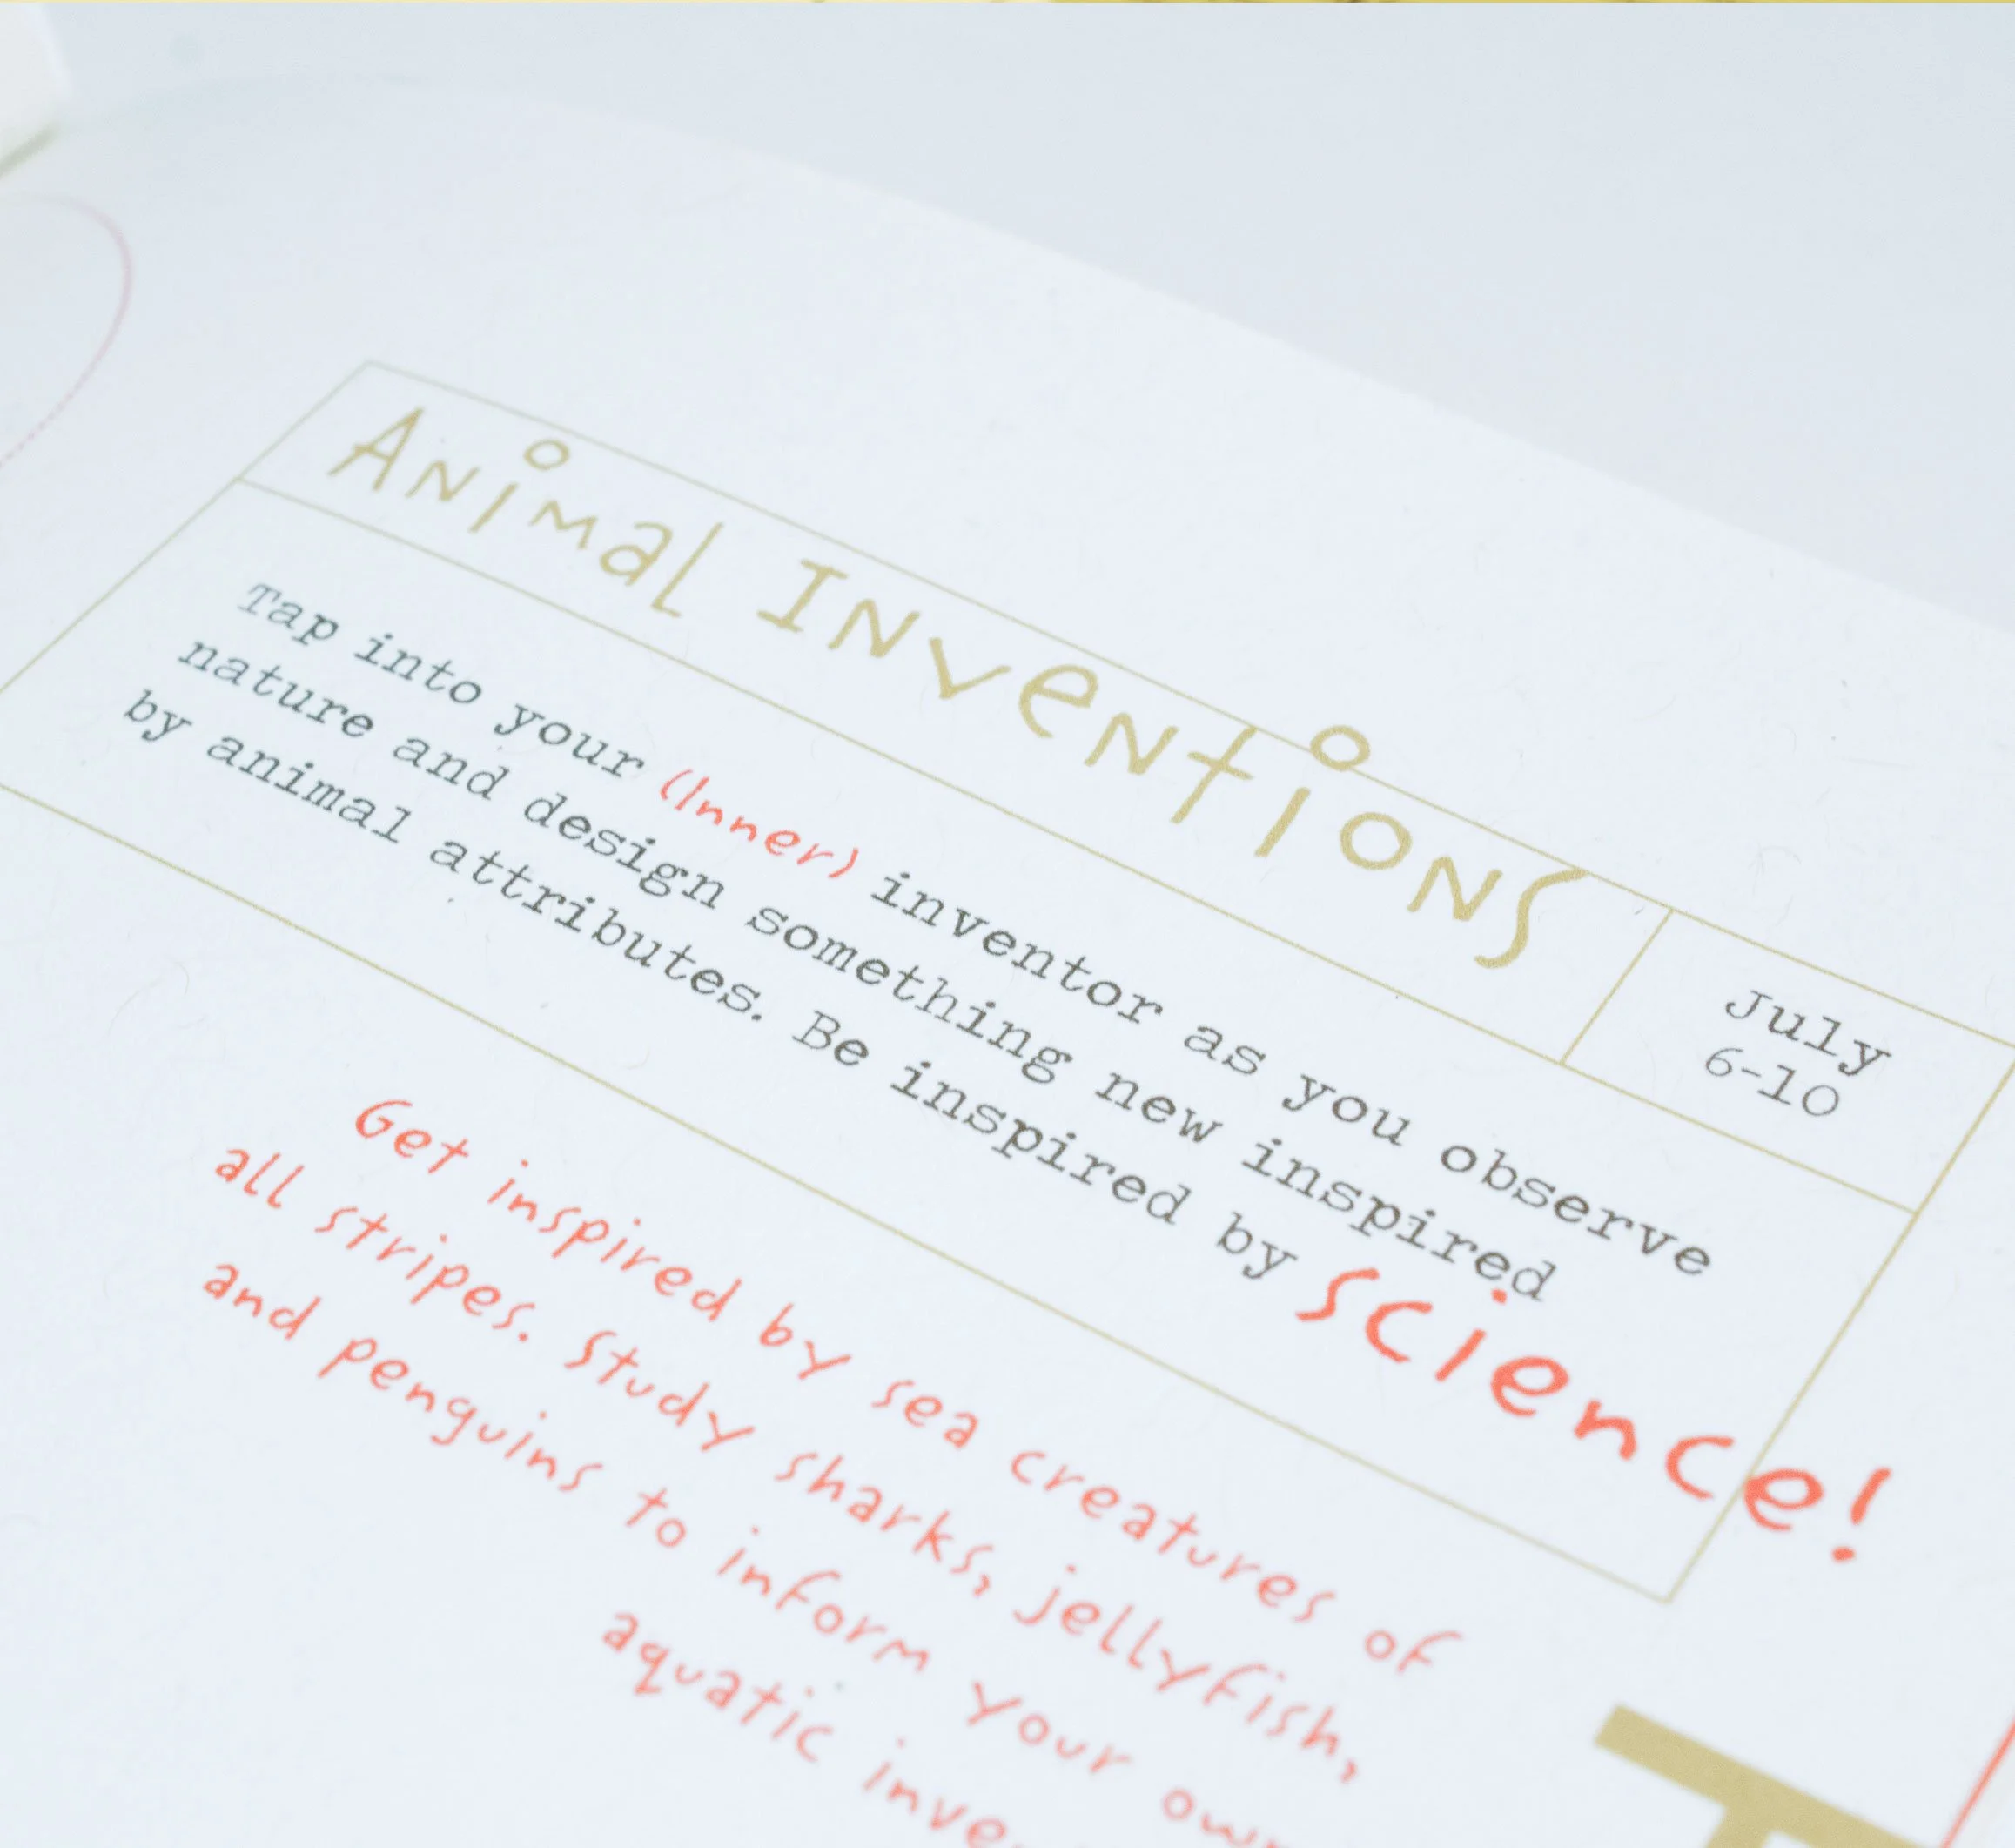 Animal Inventions
July
6-10
Tap into your (Inner) inventor as you observe
nature and design something new inspired
by animal attributes. Be inspired by science!
Get inspired by sea creatures of
all stripes. Study sharks, jellyfish,
and penguins to inform your
aquatic